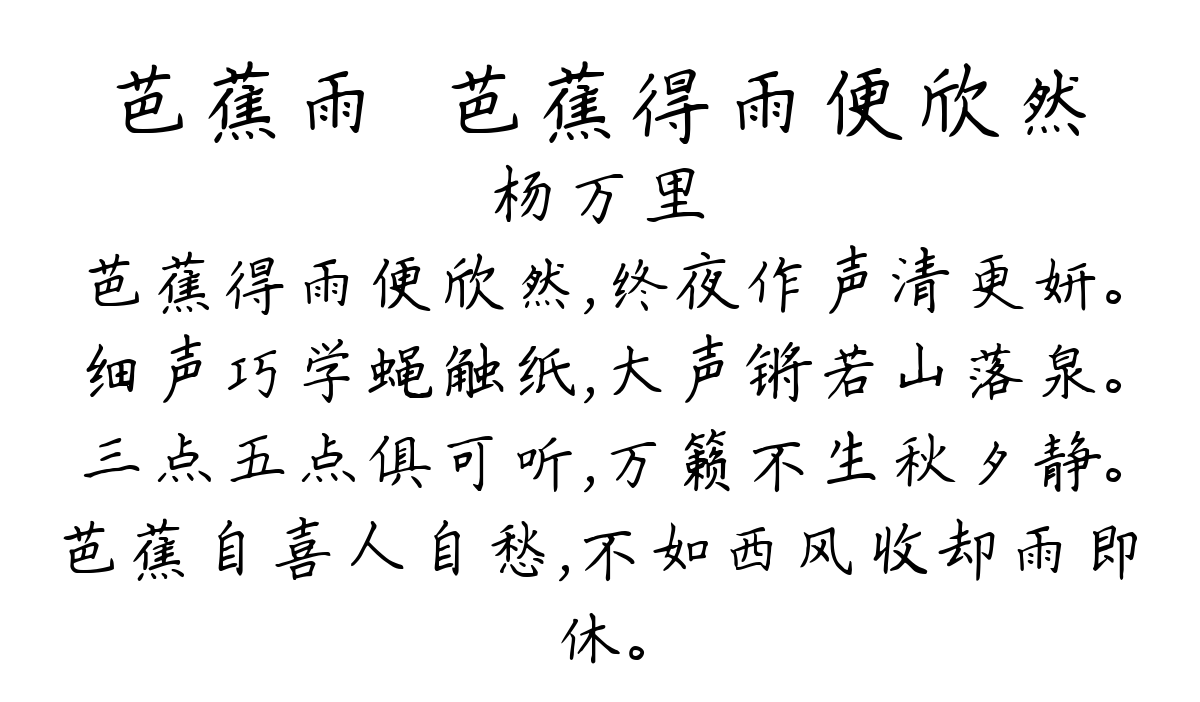 芭蕉雨 芭蕉得雨便欣然
杨万里
芭蕉得雨便欣然,终夜作声清更妍。
细声巧学蝇触纸,大声锵若山落泉。
三点五点俱可听,万籁不生秋夕静。
芭蕉自喜人自愁,不如西风收却雨即
休。